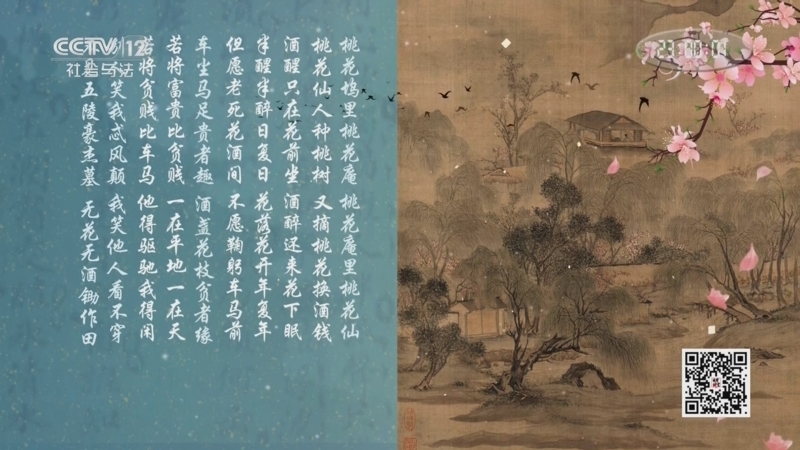 CCTV 12
社会与法
桃花坞里桃花庵 桃花庵里桃花仙
桃花仙人种桃树 又摘桃花换酒钱
酒醒只在花前坐 酒醉还来花下眠
半醒半醉日复日 花落花开年复年
但愿老死花酒间 不愿鞠躬车马前
车尘马足贵者趣 酒盏花枝贫者缘
若将富贵比贫贱 一在平地一在天
若将贫贱比车马 他得驱驰我得闲
笑我忒风颠 我笑他人看不穿
五陵豪杰墓 无花无酒锄作田